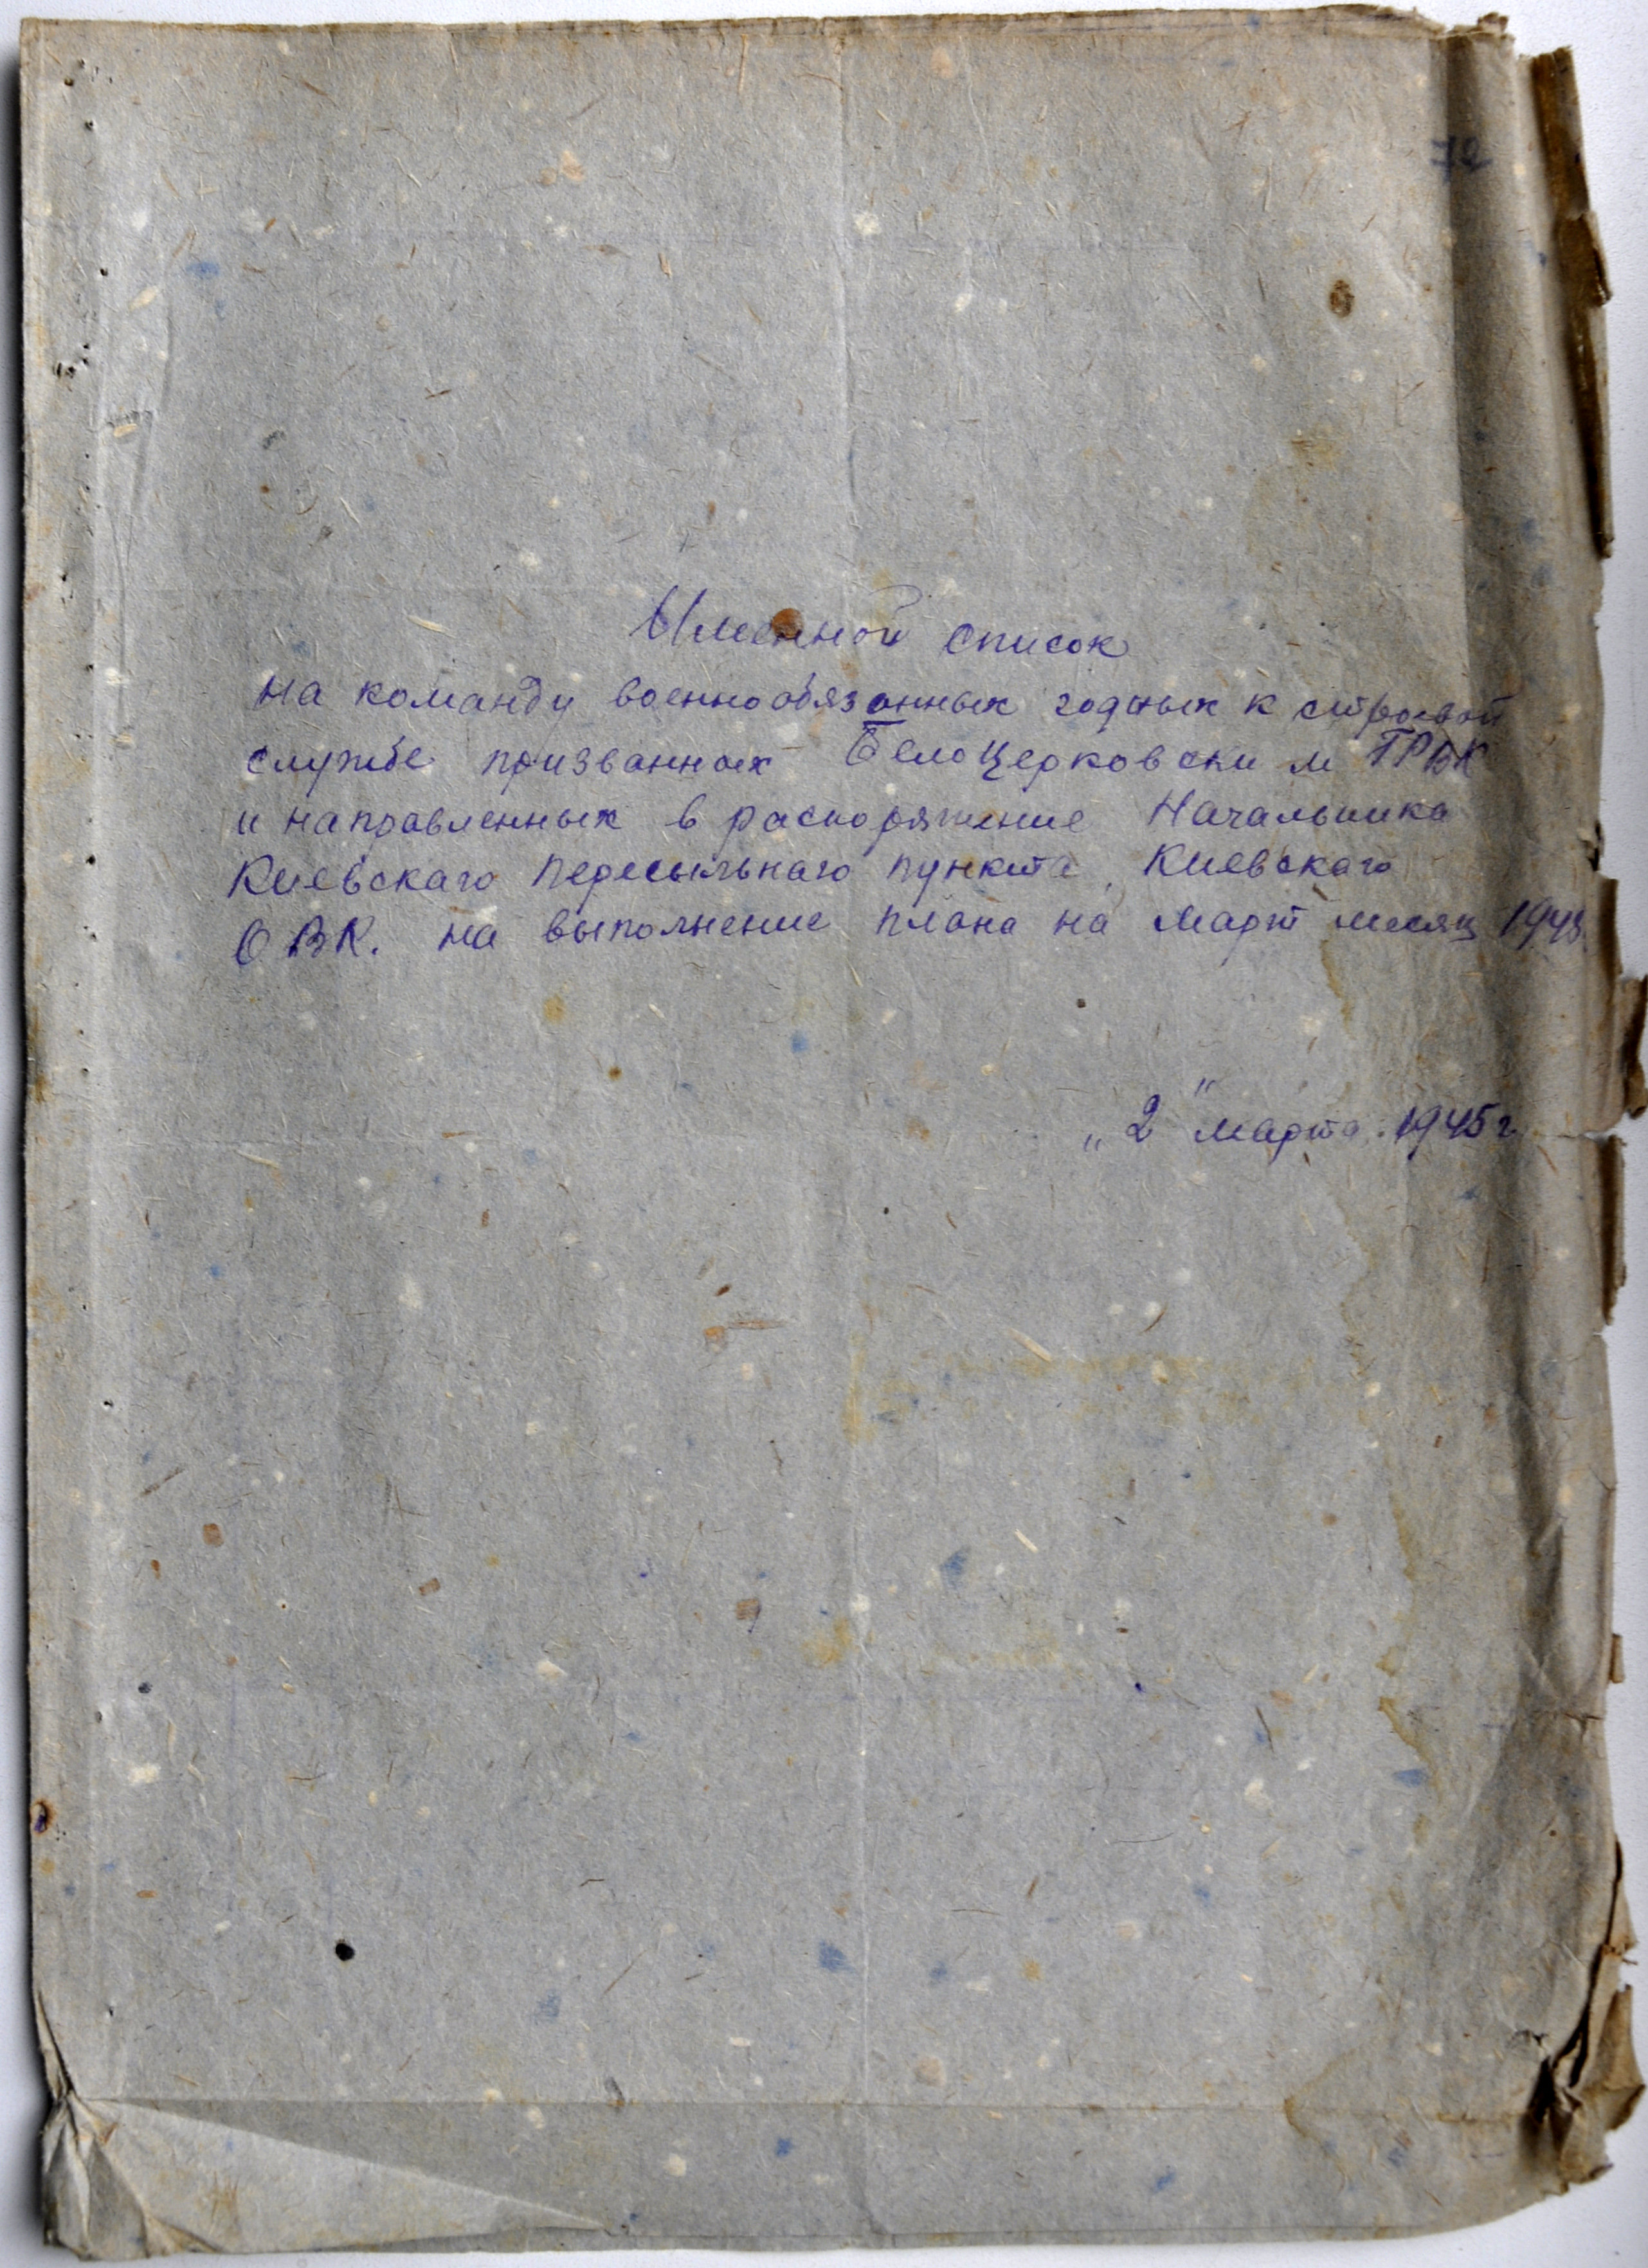 72
Именной список
на команду военнообязанных годных к строевой
службе призванных Белоцерковским ГРВК
и направленных в распоряжение Начальника
Киевскаго пересыльнаго пункта Киевскаго
ОВК. на выполнение плана на март месяц 1945
„2" марта 1945 г